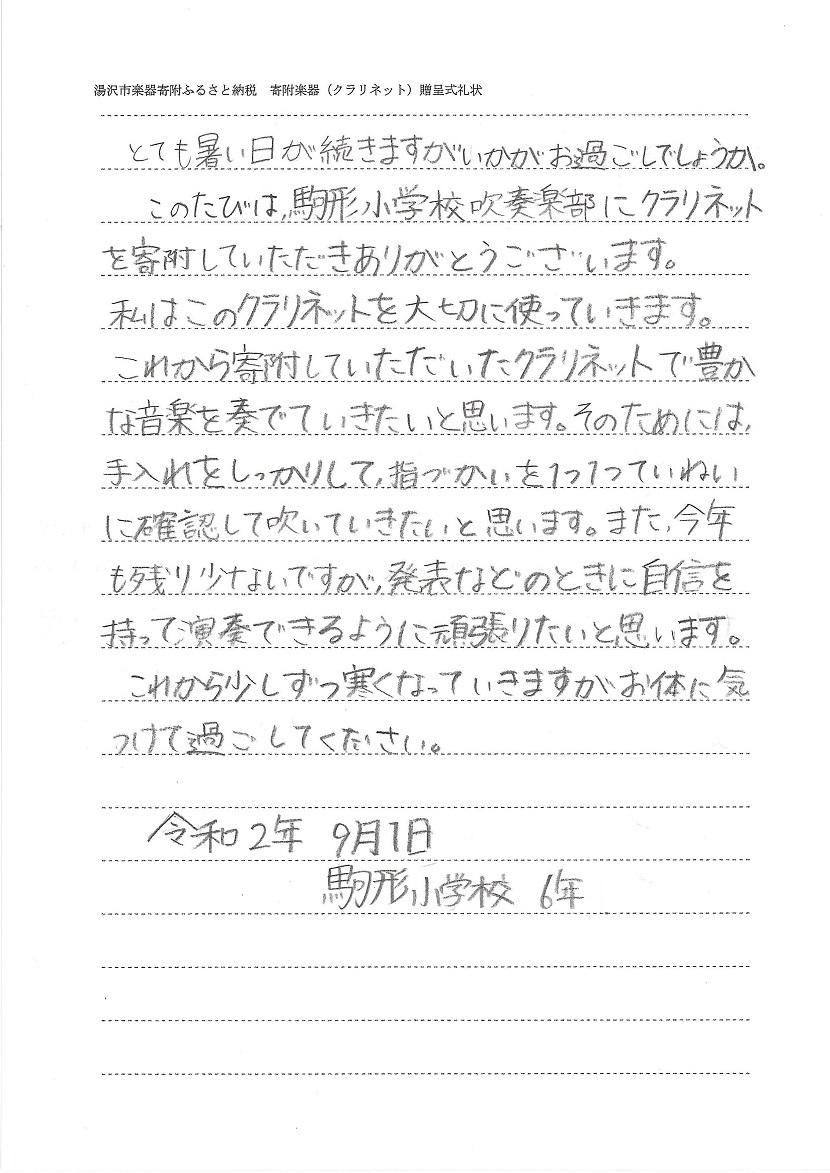 湯沢市楽器寄附ふるさと納税　寄附楽器（クラリネット）贈呈式礼状
とても暑い日が続きますがいかがお過ごしでしょうか。
このたびは、駒形小学校吹奏楽部にクラリネット
を寄附していただきありがとうございます。
私はこのクラリネットを大切に使っていきます。
これから寄附していただいたクラリネットで豊か
な音楽を奏でていきたいと思います。そのためには、
手入れをしっかりして、指づかいを1つ1つていねい
に確認して吹いていきたいと思います。また、今年
も残り少ないですが、発表などのときに自信を
持って演奏できるように頑張りたいと思います。
これから少しずつ寒くなっていきますがお体に気
つけて過ごしてください。
令和2年 9月1日
駒形小学校 6年